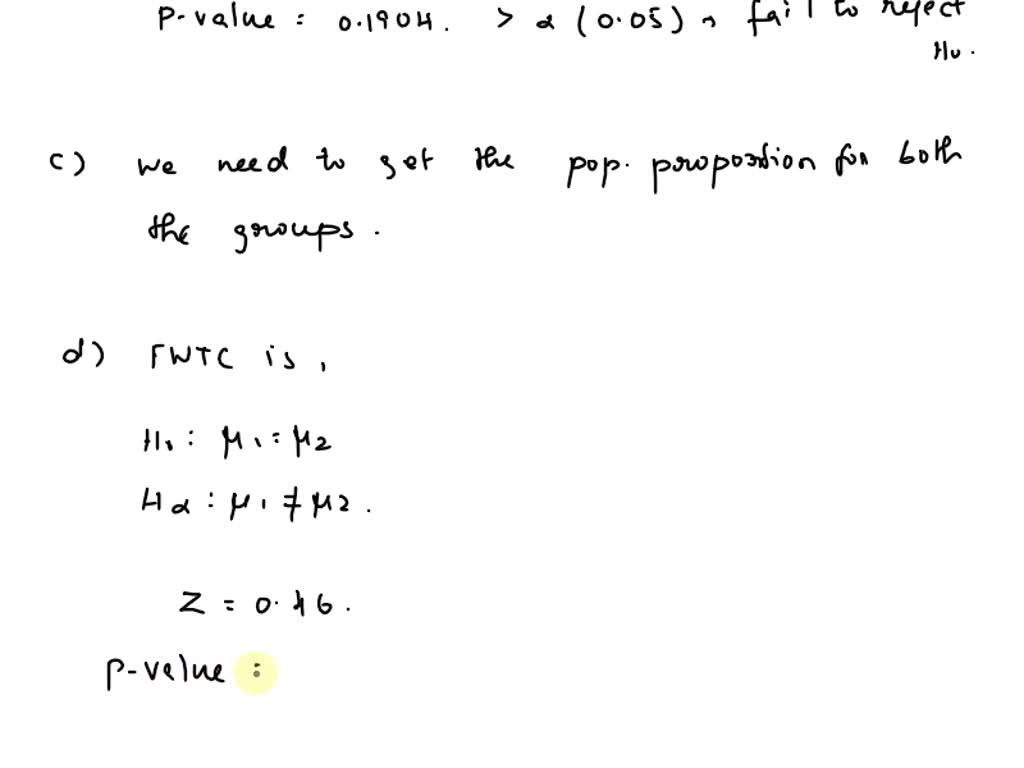 P-value : 0.1904. > α (0.05) fail to reject
H0.
c) we need to get the pop. proportion for both
the groups.
d) FWTC is,
H0 : μ1 = μ2
Hα : μ1 ≠ μ2.
Z = 0.46.
P-value :